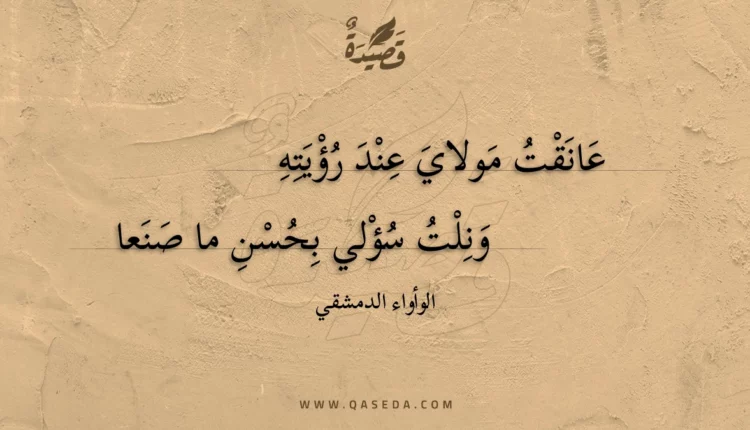 قَصِيدَةٌ
عَانَقْتُ مَولايَ عِنْدَ رُؤْيَتِهِ
وَنِلْتُ سُؤْلي بِحُسْنِ ما صَنَعا
الوأواء الدمشقي
WWW.QASEDA.COM